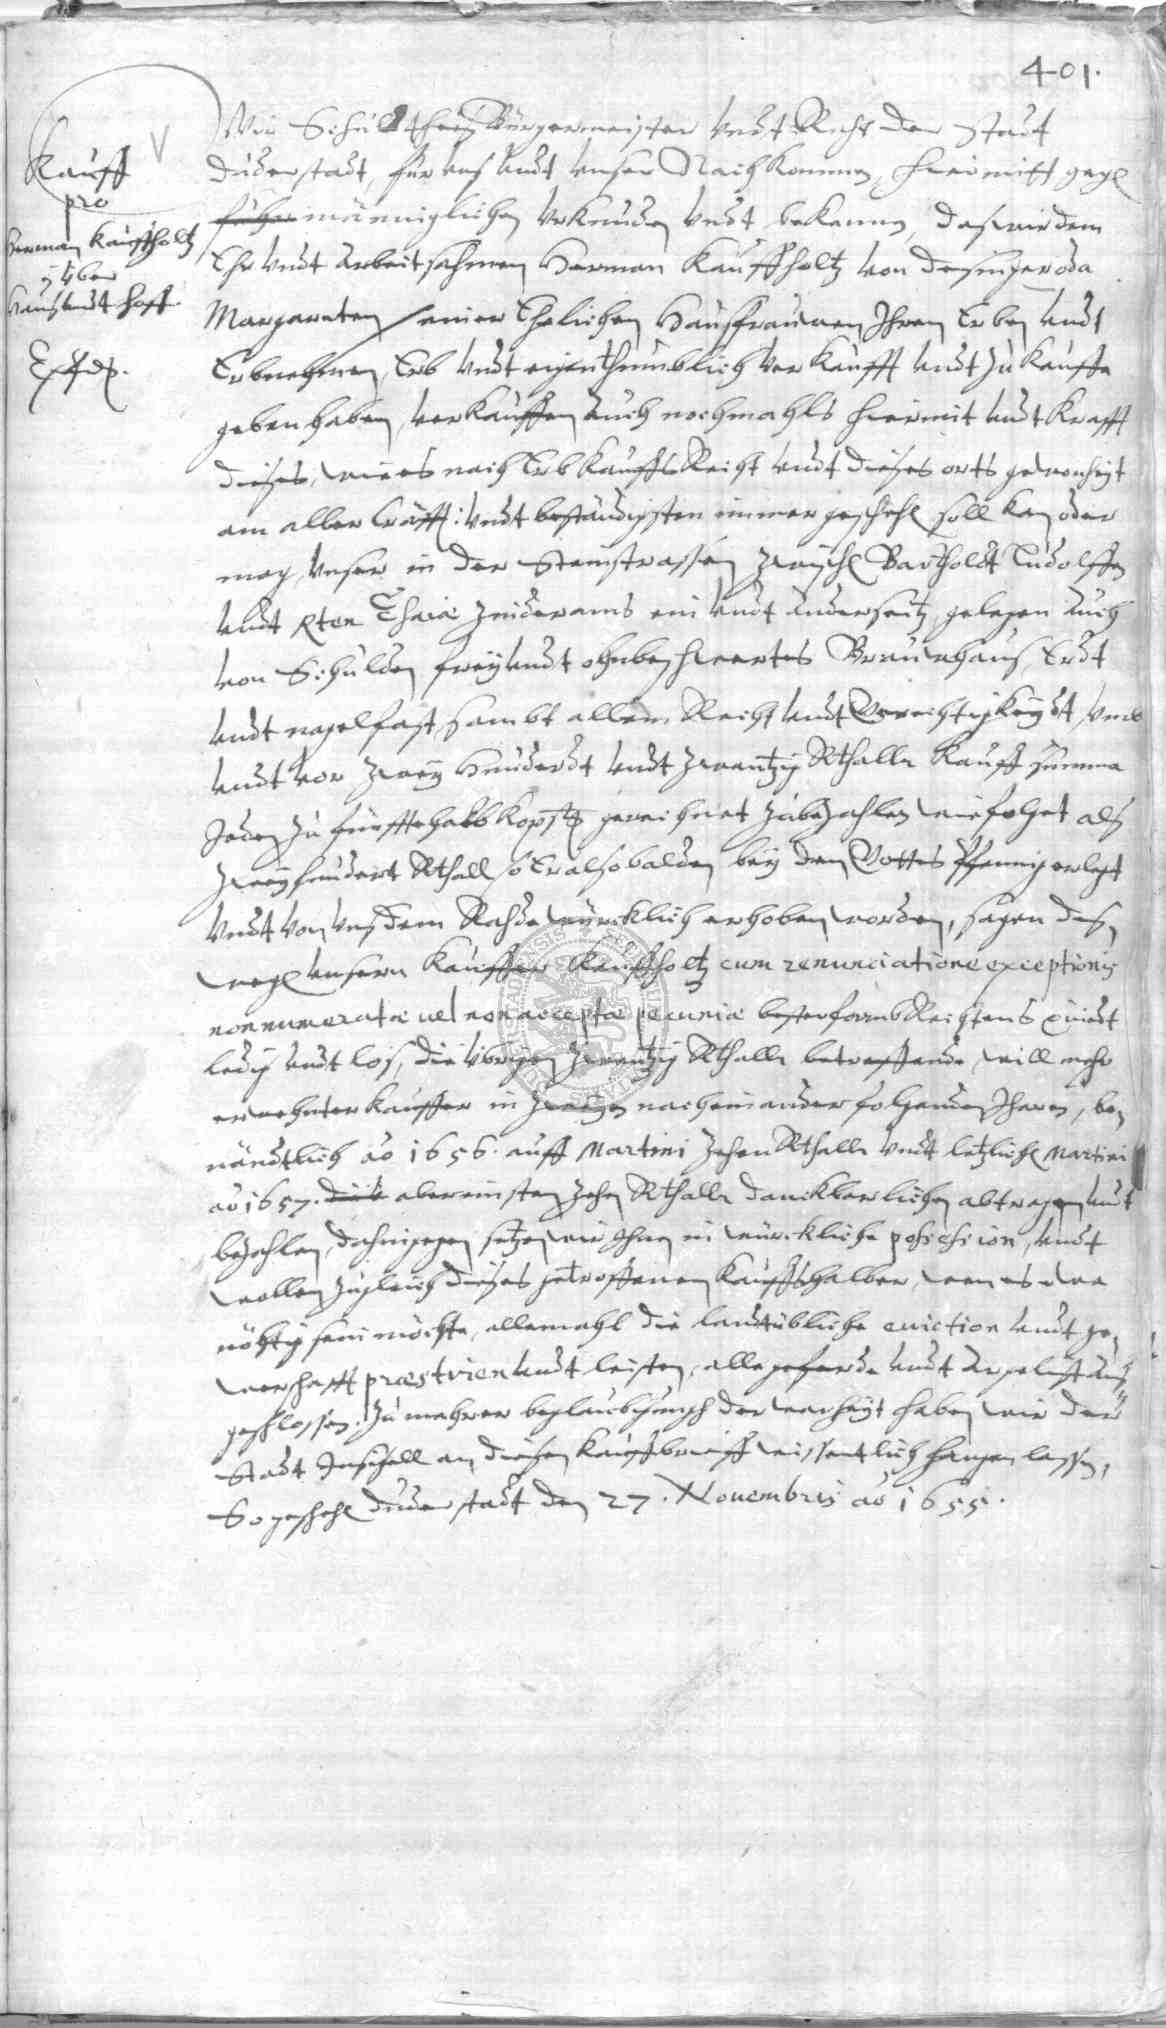 401.
Kauff
pro
Herman Kauffholtz
über
Hauß undt Hoff.
Wir Schultheiß Bürgermeister undt Raht der Stadt
Duderstadt, für uns undt unser Nachkommen, hiermitt gegen
männiglichen urkunden undt bekennen, das wir dem
Ehr undt Arbeitsahmen Herman Kauffholtz von Desingeroda
Margareten seiner Ehelichen Hausfrauwen Ihren Erben undt
Erbnehmen, Erb undt eigenthumblich verkaufft undt zu kauffe
geben haben, verkauffen auch nochmahls hiermit undt Krafft
dieses, wie es nach Erbkauffs Recht undt dieses orts gewonheyt
am aller Kräfft: undt beständigsten immer geschehen soll kan oder
mag, unser in der Steinstrassen zwischen Bartholdt Ludolffen
undt ein undt anderseitz, gelegen auch
von Schulden frey undt ohnbeschwertes Brauwhaus, Erdt
undt nagelfast, sambt allem Recht undt Gerechtigkeydt, umb
undt vor zwey Hunderdt undt zwantzig Rthaller Kauff summa
Jeden zu fünfftehalb Kopst: gerechnet zubezahlen wie folget als
zweyhundert Rthall so Er alsobalden bey dem Gottes Pfennig erlegt
undt von uns dem Rahde würcklich erhoben worden, sagen des,
wegen unsern Kauffer Kauffholtz cum renunciatione exceptionis
non numeratæ vel non acceptæ pecuniæ bester form Rechtens quidt
ledig undt los, die übrigen zwantzig Rthaller betreffende, will mehr
erwehnter Kauffer in zweyen nacheinander folgenden Jharen, be,
nändtlich ao 1656. auff Martini zehen Rthaller undt letzlichen Martini
ao 1657. abereinsten zehen Rthaller danckbarlichen abtragen undt
bezahlen, dahingegen setzen wir Ihnen in würckliche possession, undt
wollen zugleich dieses getroffenen Kauffs halber, wen es wo
nöhtig sein möchte, allemahl die landtübliche eviction undt ge,
wehrschafft præstiren undt leisten, alle geferde undt Argelist aus
geschlossen. Zu mehrer beglaubigung der warheyt haben wir der
Stadt Insiegell an diesen Kauffbrieff wissentlich hangen lassen,
So geschehen Duderstadt den 27. Novembris ao 1655.